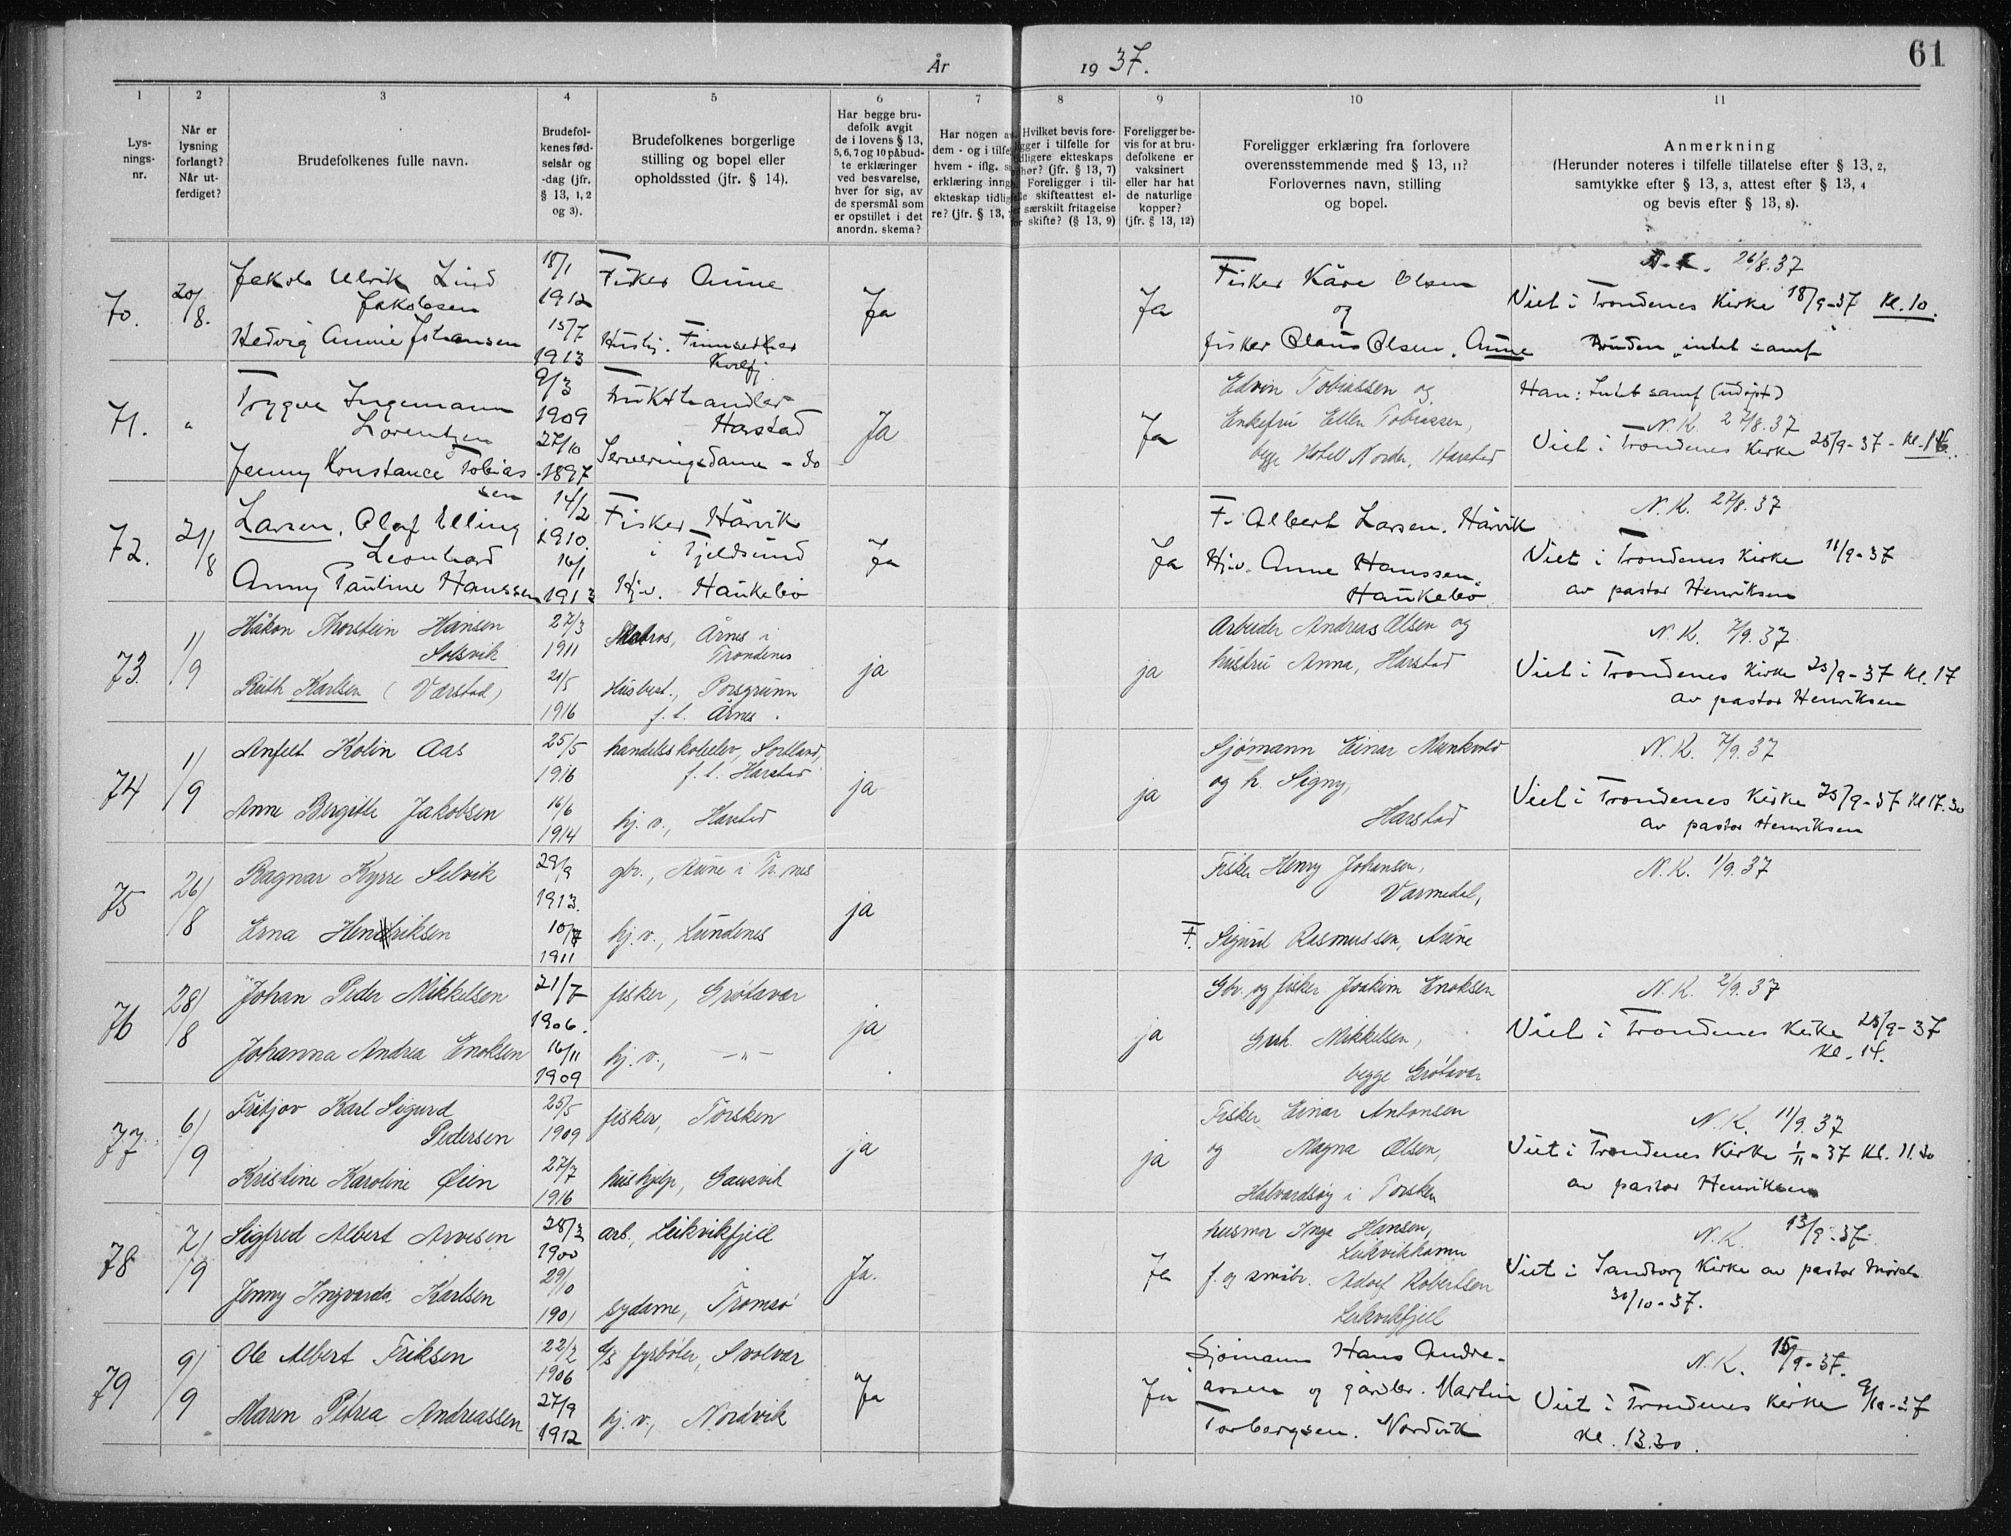 År 1937.
61
1 2 3 4 5 6 7 8 9 10 11
Lysnings-nr.
Når er lysning forlangt? Når utferdiget?
Brudefolkenes fulle navn.
Brudefolkenes fødselsår og -dag (jfr. § 13, 1, 2 og 3).
Brudefolkenes borgerlige stilling og bopel eller opholdssted (jfr. § 14).
Har begge brudefolk avgit de i lovens § 13, 5, 6, 7 og 10 påbudte erklæringer ved besvarelse, hver for sig, av de spørsmål som er opstillet i det anordn. skema?
Har nogen av dem - og i tilfelle hvem - iflg.
erklæring
ekteskap
re? (jfr. § 13,
Hvilket bevis fore-
i tilfelle for
ekteskaps
(jfr. § 13, 7)
Foreligger i til-
skifteattest el-
særskilt fritagelse
skifte? (§ 13, 9)
Foreligger bevis for at brudefolkene er vaksinert eller har hat de naturlige kopper? (jfr. § 13, 12)
Foreligger erklæring fra forlovere overensstemmende med § 13, 11? Forlovernes navn, stilling og bopel.
Anmerkning
(Herunder noteres i tilfelle tillatelse efter § 13, 2, samtykke efter § 13, 3, attest efter § 13, 4 og bevis efter § 13, 8).
70.
20/8.
Jakob Ulrik Lind
Jakobsen
Hedvig Annie Johansen
18/1
1912
15/7
1913
Fisker Aune
Husbj. Finnsæther
Kvæfj.
Ja
Ja
Fisker Kåre Olsen
og
fisker Claus Olsen. Aune
N.K. 26/8.37
Viet i Trondenes Kirke 18/9-37 Kl. 10.
Bruden "intet samf"
71.
"
Trygve Ingemann
Lorentzen
Jenny Konstance Tobias
sen
9/3
1909
27/10
1897
Frukthandler
Harstad
Serveringsdame - do
Ja
Ja
Edvin Tobiassen og
Enkefru Ellen Tobiassen,
begge Hotell Norder, Harstad
Han: Intet samf (udøpt)
N.K. 27/8.37
Viet i Trondenes Kirke 25/9-37 - Kl.
72.
21/8
Larsen, Olaf Elling
Leonhard
Anny Pauline Hanssen
14/2
1910.
16/1
1913
Fisker Hårvik
i Tjeldsund
Hj.v. Haukebø
Ja
Ja
F. Albert Larsen. Hårvik
Hj.v. Anne Hanssen.
Haukebø
N.K. 27/8.37
Viet i Trondenes Kirke 11/9-37
av pastor Henriksen
73.
1/9
Håkon Thorstein Hansen
Solsvik
Ruth Karlsen (Værstad)
27/3
1911
21/5
1916
Matros, Årnes i
Trondenes
Husbest., Porsgrunn
f.t. Årnes.
ja
ja
Arbeider Andreas Olsen og
hustru Anna, Harstad
N.K. 7/9.37
Viet i Trondenes Kirke 25/9-37 Kl. 17
av pastor Henriksen
74
1/9
Anfelt Kolin Aas
Anne Bergitte Jakobsen
25/5
1916
16/6
1914
handelsskoleelev, Sortland,
f.t. Harstad
hj.v., Harstad
ja
ja
Sjømann Einar Munkvold
og h. Signy,
Harstad
N.K. 7/9.37
Viet i Trondenes Kirke 25/9-37 Kl 17.30
av pastor Henriksen
75
26/8
Ragnar Kyrre Selvik
Erna Henriksen
29/9
1913.
10/7
1911
gbr., Aune i Tr.nes
hj.v., Lundenes
ja
Fisker Henry Johansen,
Varmedal,
F. Sigurd Rasmussen, Aune
N.K. 1/9.37
76
28/8
Johan Peder Mikkelsen
Johanna Andrea Enoksen
21/7
1906.
16/11
1909
fisker, Grøtavær
hj.v., —"—
ja
ja
Gbr. og fisker Joakim Enoksen
Mikkelsen,
begge Grøtavær
N.K. 2/9.37
Viet i Trondenes Kirke 25/9-37
Kl. 14.
77.
6/9
Fritjov Karl Sigurd
Pedersen
Kristine Karoline Øien
25/5
1909
27/7
1916
fisker, Torsken
hushjelp, Gausvik
ja
ja
Fisker Einar Antonsen
og Magna Olsen,
Halvardsøy i Torsken
N.K. 11/9.37
Viet i Trondenes Kirke 1/11-37 Kl. 11.30
av pastor Henriksen
78
7/9
Sigfred Albert Arvesen
Jenny Ingvarda Karlsen
28/3
1900
29/10
1901
arb., Leikvikfjell
sydame, Tromsø
Ja.
Ja
husmor Inga Hansen,
Leikvikhamn
f. og småbr. Adolf Robertsen
Leikvikfjell
N.K. 13/9-37.
Viet i Sandtorg Kirke av pastor Mørch
30/10-37.
79
9/9
Ole Albert Eriksen
Maren Petrea Andreassen
22/2
1906
27/9
1912
d/s fyrbøter, Svolvær
hj.v., Nordvik
Ja
Ja
Sjømann Hans Andre-
assen og gårdbr. Martin
Torbergsen. Nordvik
N.K. 15/9-37.
Viet i Trondenes Kirke 9/10-37
Kl. 13.30.